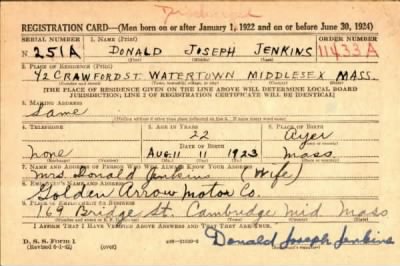 REGISTRATION CARD—(Men born on or after January 1, 1922 and on or before June 30, 1924)
SERIAL NUMBER 1. NAME (Print) ORDER NUMBER
N 251A DONALD JOSEPH JENKINS 11433A
(First) (Middle) (Last)
2. PLACE OF RESIDENCE (Print)
42 CRAWFORD ST. WATERTOWN MIDDLESEX MASS.
[THE PLACE OF RESIDENCE GIVEN ON THE LINE ABOVE WILL DETERMINE LOCAL BOARD
JURISDICTION; LINE 2 OF REGISTRATION CERTIFICATE WILL BE IDENTICAL]
3. MAILING ADDRESS
Same
4. TELEPHONE 5. AGE IN YEARS 6. PLACE OF BIRTH
22 Ayer
DATE OF BIRTH
none AUG. 11 1923 Mass
7. NAME AND ADDRESS OF PERSON WHO WILL ALWAYS KNOW YOUR ADDRESS
Mrs. Donald Jenkins (Wife)
8. EMPLOYER'S NAME AND ADDRESS
Golden Arrow Motor Co.
9. PLACE OF EMPLOYMENT OR BUSINESS
169 Bridge St. Cambridge Mid. Mass
I AFFIRM THAT I HAVE VERIFIED ABOVE ANSWERS AND THAT THEY ARE TRUE.
D. S. S. Form 1 (over)
(Revised 6-1-42)
Donald Joseph Jenkins